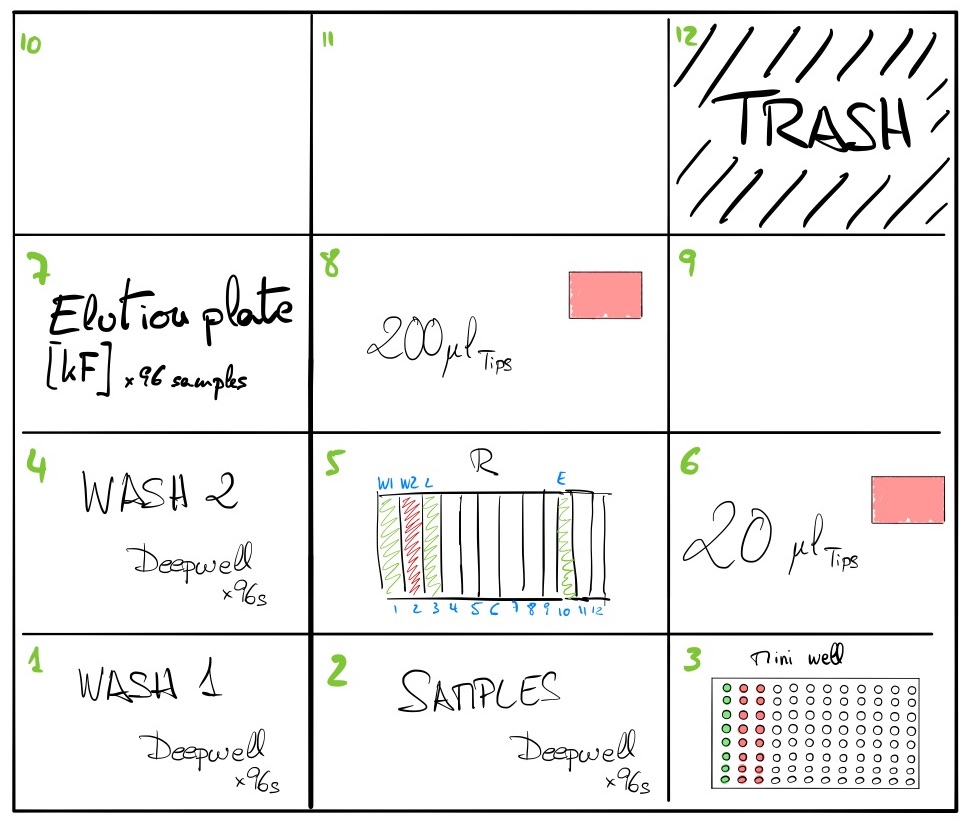 10
11
12
TRASH
7
Elution plate
[kF] x96 samples
8
200 µl Tips
9
4
WASH 2
Deepwell
x96s
5
R
W1 W2 L E
1 2 3 4 5 6 7 8 9 10 11 12
6
20 µl Tips
1
WASH 1
Deepwell
x96s
2
SAMPLES
Deepwell
x96s
3
Mini well